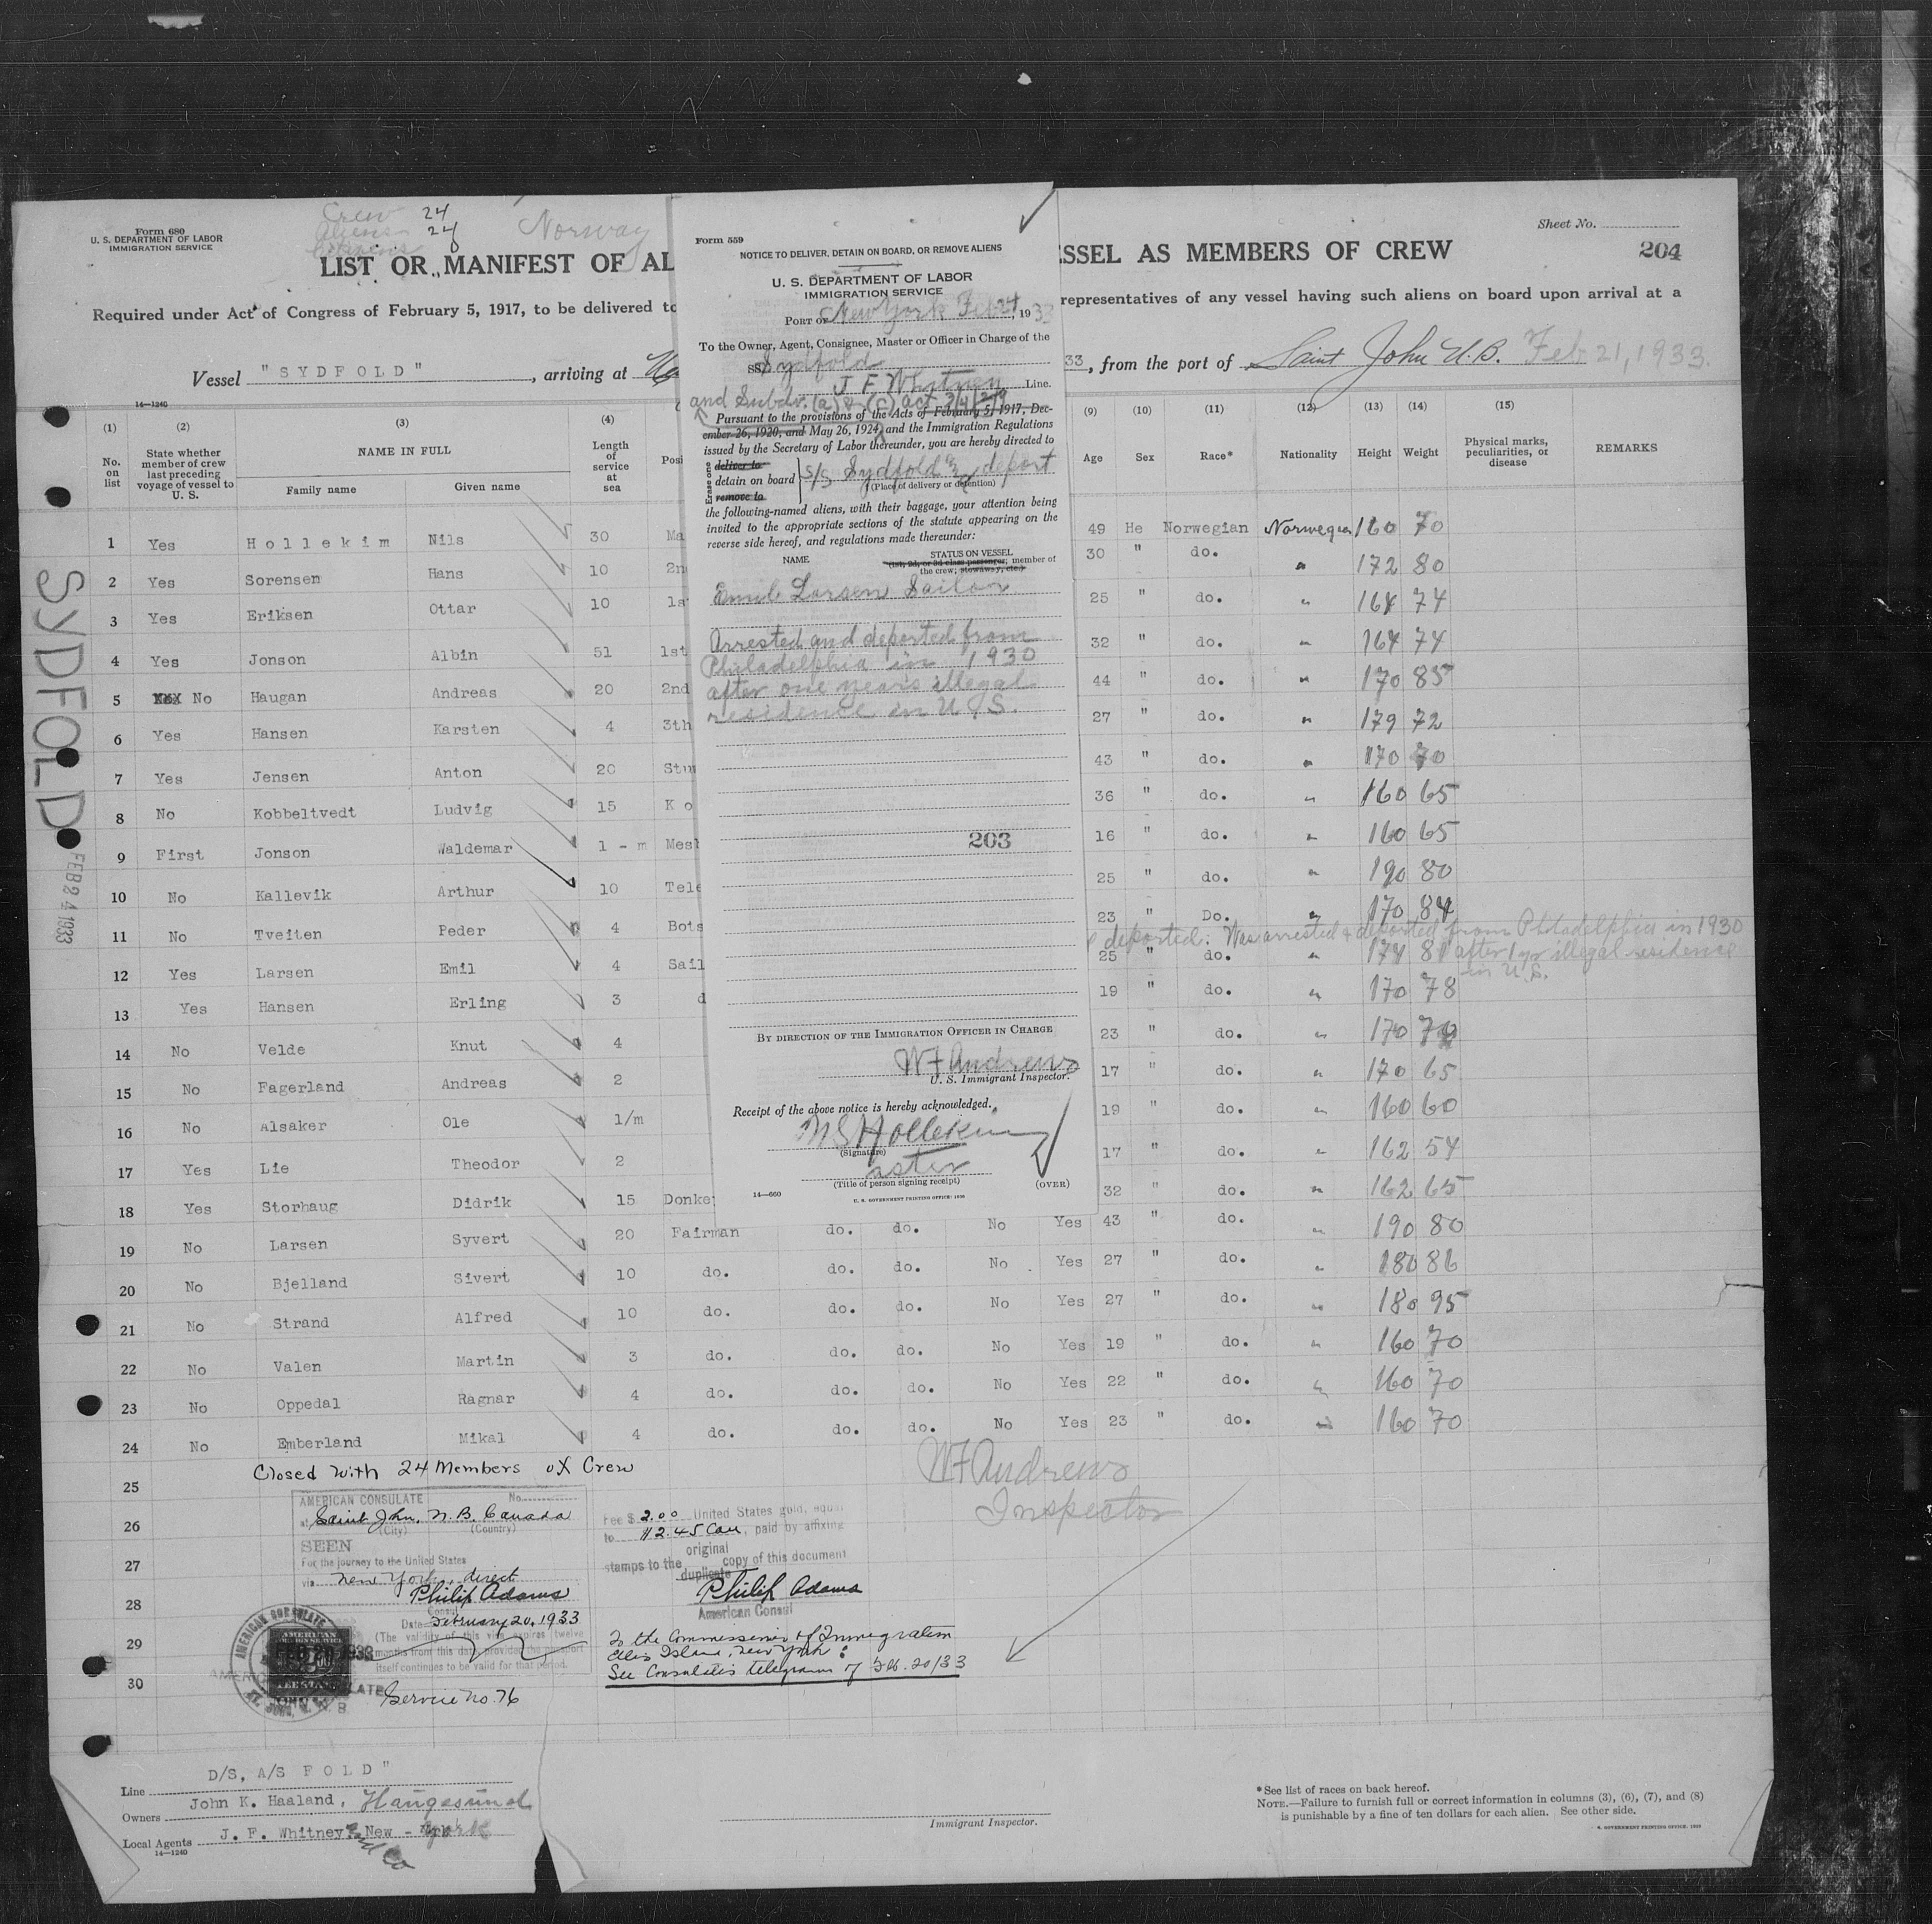 Form 680
U. S. DEPARTMENT OF LABOR
IMMIGRATION SERVICE
Crew 24
Aliens 24
Norway
LIST OR MANIFEST OF AL
SSEL AS MEMBERS OF CREW
Sheet No.
204
Required under Act of Congress of February 5, 1917, to be delivered to
representatives of any vessel having such aliens on board upon arrival at a
Vessel "SYDFOLD", arriving at
33, from the port of Saint John N.B. Feb 21, 1933.
14—1240
Form 559
NOTICE TO DELIVER, DETAIN ON BOARD, OR REMOVE ALIENS
U. S. DEPARTMENT OF LABOR
IMMIGRATION SERVICE
PORT OF New York Feb 24, 1933
To the Owner, Agent, Consignee, Master or Officer in Charge of the
SS Sydfold
J F Whitney Line.
and Subdv. (a) & (c) act 3/4/29
Pursuant to the provisions of the Acts of February 5, 1917, Dec-
ember 26, 1920, and May 26, 1924, and the Immigration Regulations
issued by the Secretary of Labor thereunder, you are hereby directed to
Erase one
deliver to
detain on board S/S Sydfold & deport
remove to
(Place of delivery or detention)
the following-named aliens, with their baggage, your attention being
invited to the appropriate sections of the statute appearing on the
reverse side hereof, and regulations made thereunder:
NAME
STATUS ON VESSEL
(1st, 2d, or 3d class passenger; member of
the crew; stowaway, etc.)
Emil Larsen Sailor
Arrested and deported from
Philadelphia in 1930
after one years illegal
residence in U.S.
203
BY DIRECTION OF THE IMMIGRATION OFFICER IN CHARGE
W F Andrews
U. S. Immigrant Inspector.
Receipt of the above notice is hereby acknowledged.
N S Hollekim
(Signature)
aster
(Title of person signing receipt)
(OVER)
14—660
U. S. GOVERNMENT PRINTING OFFICE: 1930
(1) (2) (3) (4) (9) (10) (11) (12) (13) (14) (15)
No. on list
State whether member of crew last preceding voyage of vessel to U. S.
NAME IN FULL
Family name Given name
Length of service at sea
Posi
Age Sex Race* Nationality Height Weight Physical marks, peculiarities, or disease REMARKS
1 Yes Hollekim Nils 30 Ma 49 He Norwegian Norwegian 160 70
2 Yes Sorensen Hans 10 2n 30 " do. " 172 80
3 Yes Eriksen Ottar 10 1s 25 " do. " 164 74
4 Yes Jonson Albin 51 1st 32 " do. " 164 74
5 XXX No Haugan Andreas 20 2nd 44 " do. " 170 85
6 Yes Hansen Karsten 4 3th 27 " do. " 179 72
7 Yes Jensen Anton 20 Stu 43 " do. " 170 70
8 No Kobbeltvedt Ludvig 15 Ko 36 " do. " 160 65
9 First Jonson Waldemar 1 - m Mes 16 " do. " 160 65
10 No Kallevik Arthur 10 Tele 25 " do. " 190 80
11 No Tveiten Peder 4 Bots 23 " Do. " 170 84
deported. Was arrested & deported from Philadelphia in 1930
12 Yes Larsen Emil 4 Sail 25 " do. " 174 81 after 1 yr illegal residence
in U.S.
13 Yes Hansen Erling 3 d 19 " do. " 170 78
14 No Velde Knut 4 23 " do. " 170
15 No Fagerland Andreas 2 17 " do. " 170 65
16 No Alsaker Ole 1/m 19 " do. " 160 60
17 Yes Lie Theodor 2 17 " do. " 162 54
18 Yes Storhaug Didrik 15 Donke 32 " do. " 162 65
19 No Larsen Syvert 20 Fairman do. do. No Yes 43 " do. " 190 80
20 No Bjelland Sivert 10 do. do. do. No Yes 27 " do. " 180 86
21 No Strand Alfred 10 do. do. do. No Yes 27 " do. " 180 95
22 No Valen Martin 3 do. do. do. No Yes 19 " do. " 160 70
23 No Oppedal Ragnar 4 do. do. do. No Yes 22 " do. " 160 70
24 No Emberland Mikal 4 do. do. do. No Yes 23 " do. " 160 70
25
26
27
28
29
30
Closed with 24 Members of Crew
W F Andrews
Inspector
AMERICAN CONSULATE No.
at Saint John, N.B. Canada
(City) (Country)
SEEN
For the journey to the United States
via New York, direct
Philip Adams
Consul
Date February 20, 1933
(The validity of this visa expires twelve
months from this date provided the passport
itself continues to be valid for that period.
Service No. 76
Fee $ 2.00 United States gold, equal
to $2.45 Can, paid by affixing
original
stamps to the duplicate copy of this document
Philip Adams
American Consul
To the Commissioner of Immigration
Ellis Island, New York:
See Consulate's telegram of Feb. 20/33
SYDFOLD
FEB 24 1933
Line D/S, A/S FOLD"
Owners John K. Haaland, Haugesund
Local Agents J. F. Whitney and Co New - York
14—1240
Immigrant Inspector.
*See list of races on back hereof.
NOTE.—Failure to furnish full or correct information in columns (3), (6), (7), and (8)
is punishable by a fine of ten dollars for each alien. See other side.